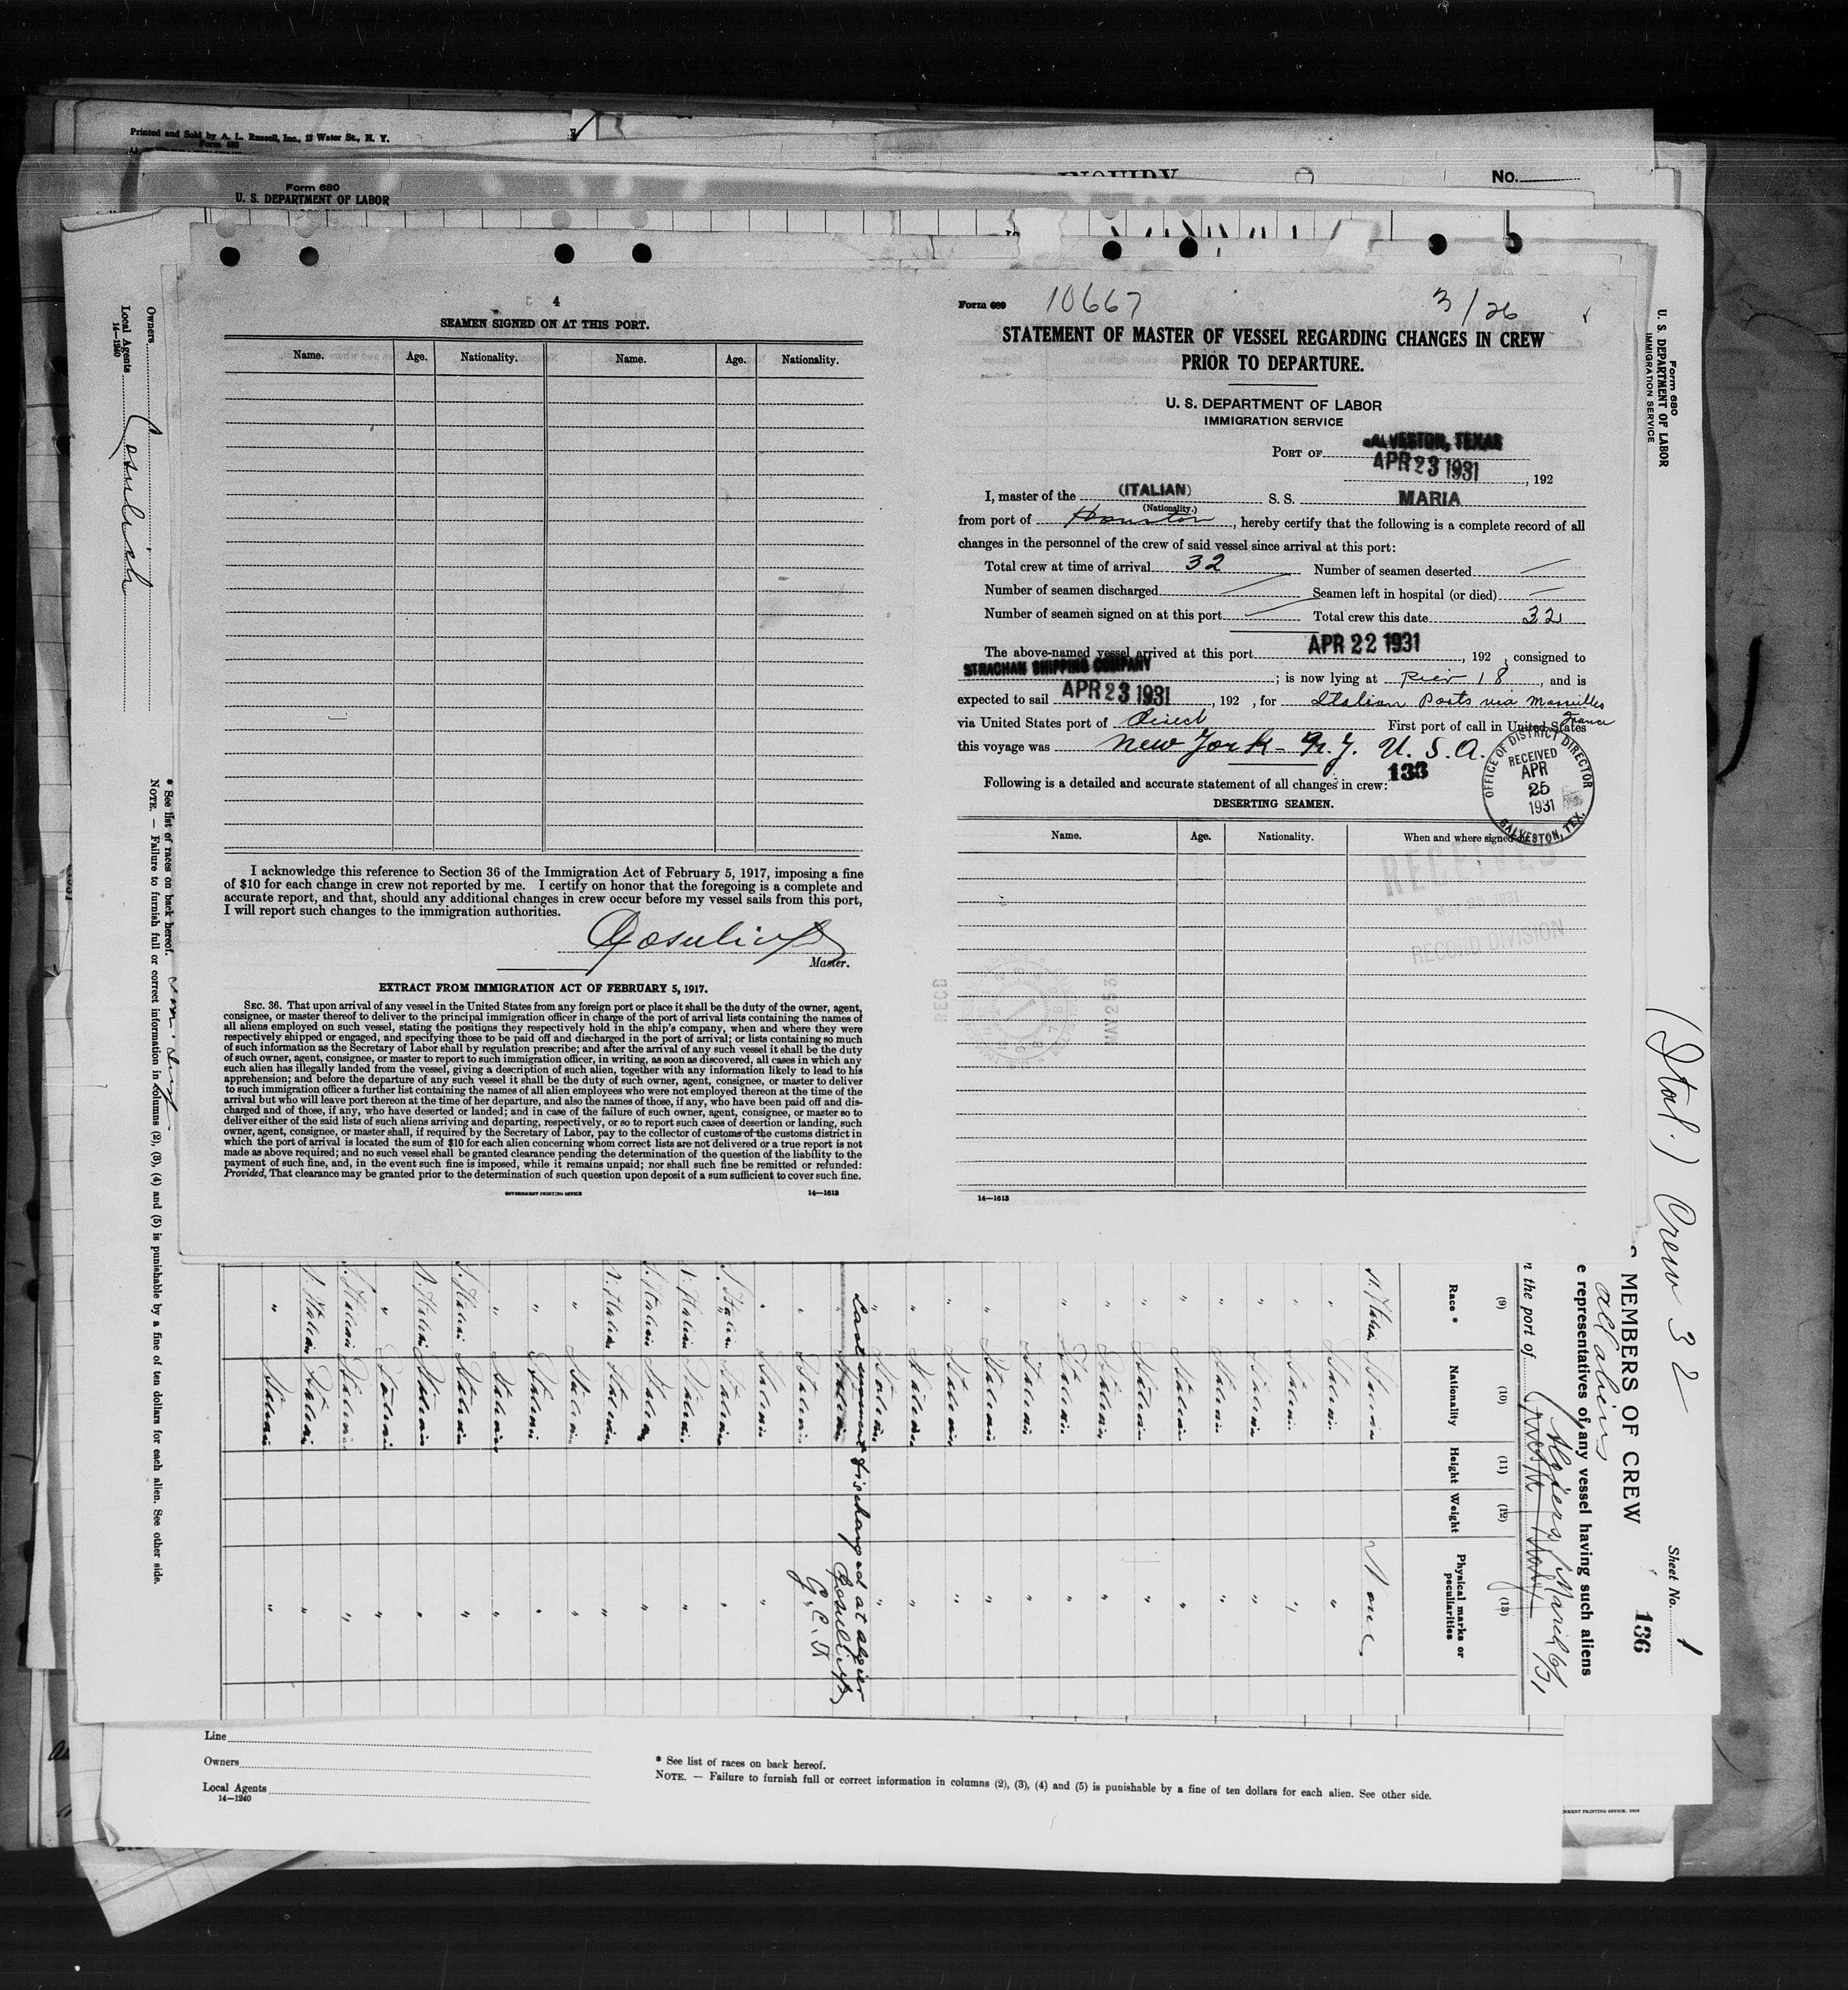 Printed and Sold by A. L. Russell, Inc., 12 Water St., N. Y.
Form 680
INQUIRY
No.
Form 680
U. S. DEPARTMENT OF LABOR
4
SEAMEN SIGNED ON AT THIS PORT.
Name. Age. Nationality. Name. Age. Nationality.
I acknowledge this reference to Section 36 of the Immigration Act of February 5, 1917, imposing a fine
of $10 for each change in crew not reported by me. I certify on honor that the foregoing is a complete and
accurate report, and that, should any additional changes in crew occur before my vessel sails from this port,
I will report such changes to the immigration authorities.
Cosulich
Master.
EXTRACT FROM IMMIGRATION ACT OF FEBRUARY 5, 1917.
SEC. 36. That upon arrival of any vessel in the United States from any foreign port or place it shall be the duty of the owner, agent,
consignee, or master thereof to deliver to the principal immigration officer in charge of the port of arrival lists containing the names of
all aliens employed on such vessel, stating the positions they respectively hold in the ship's company, when and where they were
respectively shipped or engaged, and specifying those to be paid off and discharged in the port of arrival; or lists containing so much
of such information as the Secretary of Labor shall by regulation prescribe; and after the arrival of any such vessel it shall be the duty
of such owner, agent, consignee, or master to report to such immigration officer, in writing, as soon as discovered, all cases in which any
such alien has illegally landed from the vessel, giving a description of such alien, together with any information likely to lead to his
apprehension; and before the departure of any such vessel it shall be the duty of such owner, agent, consignee, or master to deliver
to such immigration officer a further list containing the names of all alien employees who were not employed thereon at the time of the
arrival but who will leave port thereon at the time of her departure, and also the names of those, if any, who have been paid off and dis-
charged and of those, if any, who have deserted or landed; and in case of the failure of such owner, agent, consignee, or master so to
deliver either of the said lists of such aliens arriving and departing, respectively, or so to report such cases of desertion or landing, such
owner, agent, consignee, or master shall, if required by the Secretary of Labor, pay to the collector of customs of the customs district in
which the port of arrival is located the sum of $10 for each alien concerning whom correct lists are not delivered or a true report is not
made as above required; and no such vessel shall be granted clearance pending the determination of the question of the liability to the
payment of such fine, and, in the event such fine is imposed, while it remains unpaid; nor shall such fine be remitted or refunded:
Provided, That clearance may be granted prior to the determination of such question upon deposit of a sum sufficient to cover such fine.
GOVERNMENT PRINTING OFFICE 14—1613
Form 689 10667 3/26
STATEMENT OF MASTER OF VESSEL REGARDING CHANGES IN CREW
PRIOR TO DEPARTURE.
U. S. DEPARTMENT OF LABOR
IMMIGRATION SERVICE
PORT OF GALVESTON, TEXAS
APR 23 1931, 192
I, master of the (ITALIAN) S. S. MARIA
(Nationality.)
from port of Houston, hereby certify that the following is a complete record of all
changes in the personnel of the crew of said vessel since arrival at this port:
Total crew at time of arrival 32 Number of seamen deserted —
Number of seamen discharged — Seamen left in hospital (or died) —
Number of seamen signed on at this port — Total crew this date 32
The above-named vessel arrived at this port APR 22 1931, 192 , consigned to
STRACHAN SHIPPING COMPANY; is now lying at Pier 18, and is
expected to sail APR 23 1931, 192 , for Italian Ports via Marseilles
France
via United States port of Direct First port of call in United States
this voyage was New York - N.Y. U. S. A.
133
Following is a detailed and accurate statement of all changes in crew:
DESERTING SEAMEN.
OFFICE OF DISTRICT DIRECTOR
RECEIVED
APR
25
1931
GALVESTON, TEX.
Name. Age. Nationality. When and where signed
RECEIVED
MAY 25 1931
RECORD DIVISION
RECD
MAY 25 31
14—1613
Owners
Local Agents Cosulich
14—1240
* See list of races on back hereof.
NOTE. — Failure to furnish full or correct information in columns (2), (3), (4) and (5) is punishable by a fine of ten dollars for each alien. See other side.
Form 680
U. S. DEPARTMENT OF LABOR
IMMIGRATION SERVICE
(Ital.) Crew 32
Sheet No. 1
136
MEMBERS OF CREW
all aliens
e representatives of any vessel having such aliens
n the port of Algiers March 6/31
(9) (10) (11) (12) (13)
Race * Nationality Height Weight Physical marks or peculiarities
N. Italian Italian None
" Italian "
" Italian "
" Italian "
" Italian "
" Italian "
" Italian "
" Italian "
" Italian "
" Italian "
" Italian "
" Italian "
" Italian "
" Italian "
Last discharged at algier
Cosulich
S. Italian Italian "
N. Italian Italian "
S. Italian Italian "
N. Italian Italian "
" Italian "
" Italian "
" Italian "
S. Italian Italian "
N. Italian Italian "
" Italian "
S. Italian Italian "
N. Italian Italian "
" Italian "
Line
Owners
Local Agents
14—1240
* See list of races on back hereof.
NOTE. — Failure to furnish full or correct information in columns (2), (3), (4) and (5) is punishable by a fine of ten dollars for each alien. See other side.